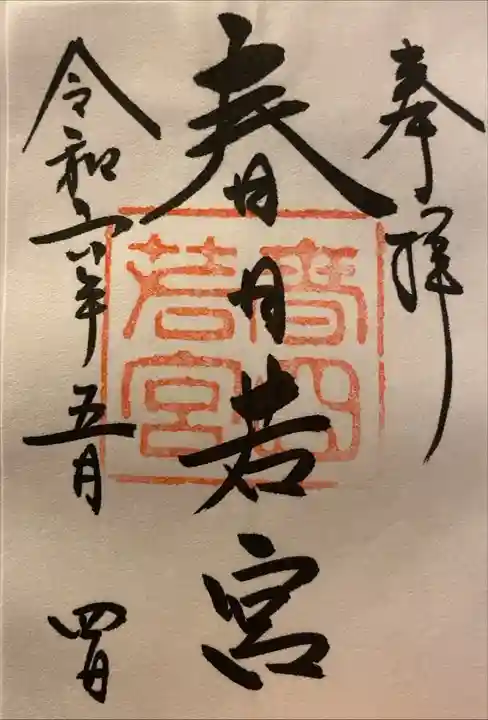 奉拝
春日若宮
令和六年五月四日
春日
若宮